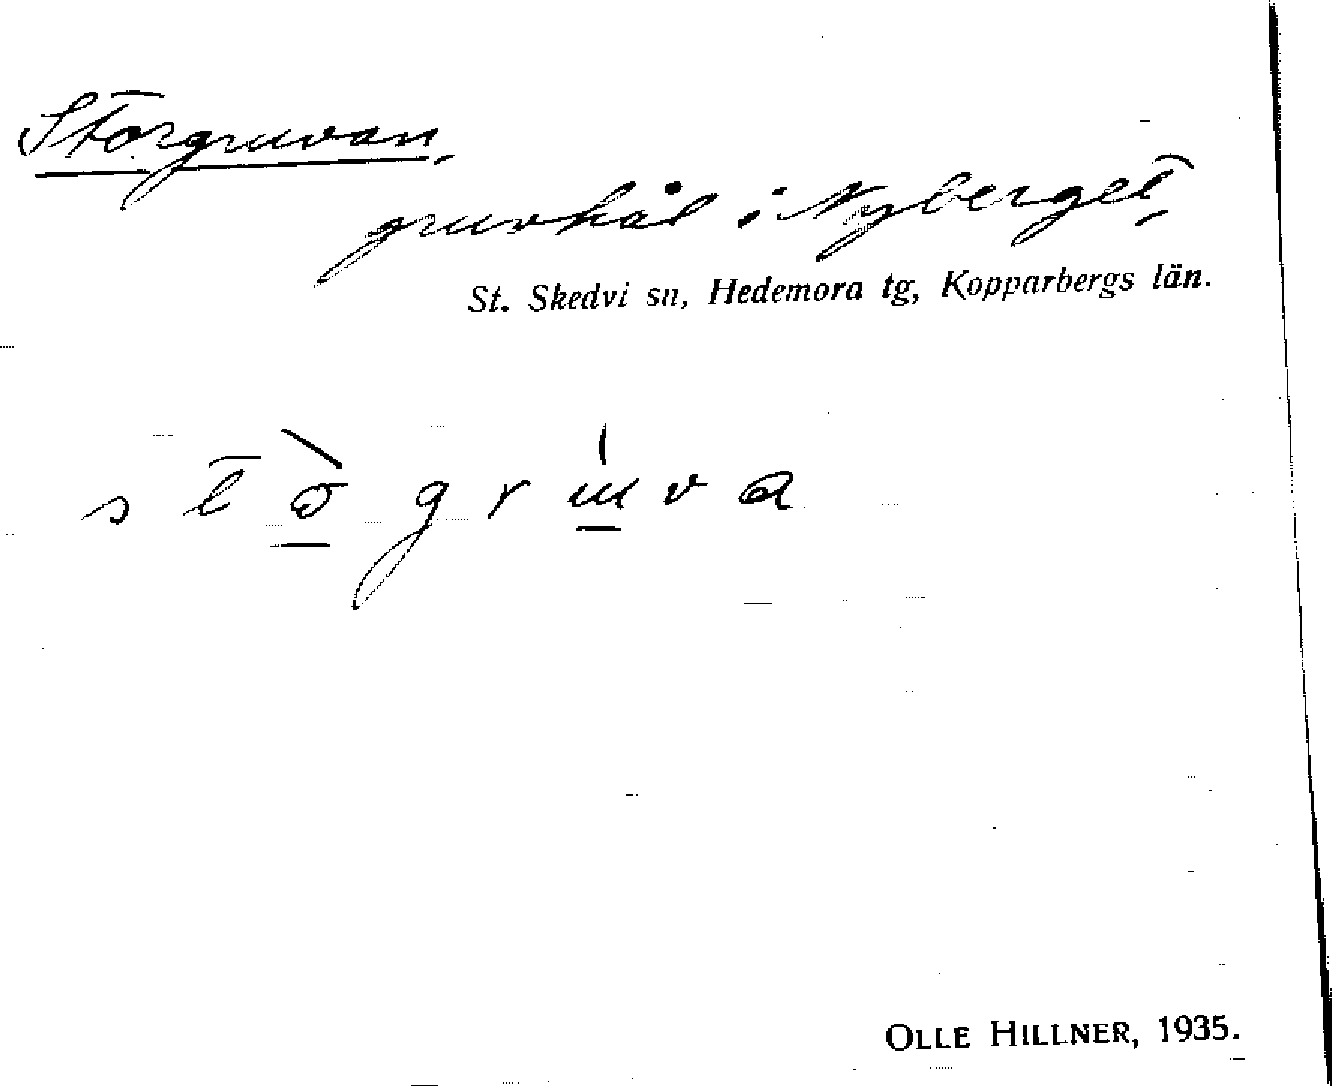 Storgruvan,
gruvhål i Nyberget,
St. Skedvi sn, Hedemora tg, Kopparbergs län.
OLLE HILLNER, 1935.